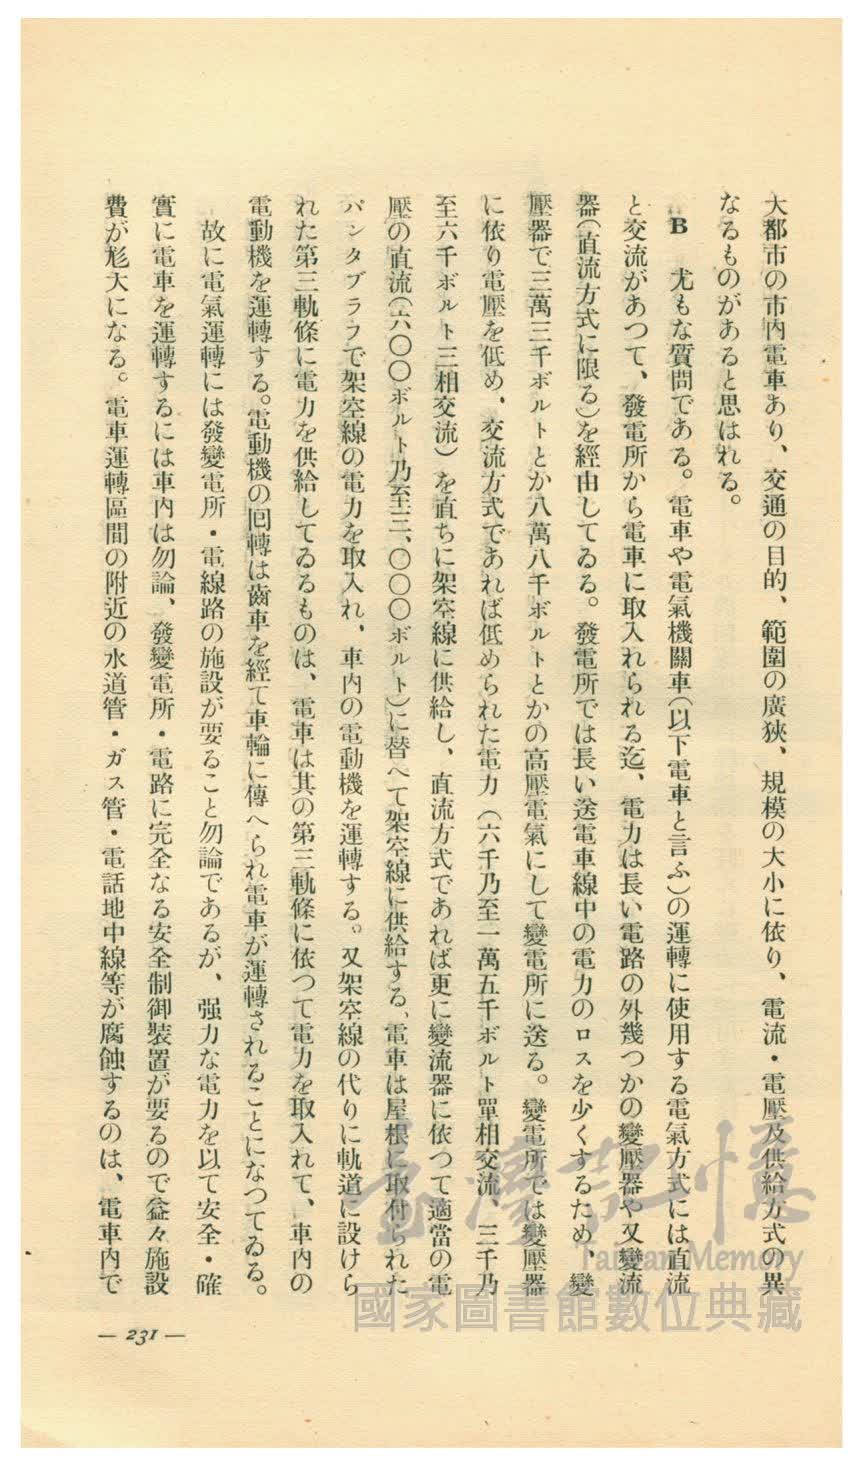 大都市の市內電車あり、交通の目的、範圍の廣狹、規模の大小に依り、電流・電壓及供給方式の異
なるものがあると思はれる。
B 尤もな質問である。電車や電氣機關車(以下電車と言ふ)の運轉に使用する電氣方式には直流
と交流があつて、發電所から電車に取入れられる迄、電力は長い電路の外幾つかの變壓器や又變流
器(直流方式に限る)を經由してゐる。發電所では長い送電車線中の電力のロスを少くするため、變
壓器で三萬三千ボルトとか八萬八千ボルトとかの高壓電氣にして變電所に送る。變電所では變壓器
に依り電壓を低め、交流方式であれば低められた電力(六千乃至一萬五千ボルト單相交流、三千乃
至六千ボルト三相交流)を直ちに架空線に供給し、直流方式であれば更に變流器に依つて適當の電
壓の直流(六〇〇ボルト乃至三、〇〇〇ボルト)に替へて架空線に供給する、電車は屋根に取付られた
パンタブラフで架空線の電力を取入れ、車內の電動機を運轉する。又架空線の代りに軌道に設けら
れた第三軌條に電力を供給してゐるものは、電車は其の第三軌條に依つて電力を取入れて、車內の
電動機を運轉する。電動機の回轉は齒車を經て車輪に傳へられ電車が運轉されることになつてゐる。
故に電氣運轉には發變電所・電線路の施設が要ること勿論であるが、强力な電力を以て安全・確
實に電車を運轉するには車內は勿論、發變電所・電路に完全なる安全制御裝置が要るので益々施設
費が尨大になる。電車運轉區間の附近の水道管・ガス管・電話地中線等が腐蝕するのは、電車內で
— 231 —
臺灣記憶
Taiwan Memory
國家圖書館數位典藏